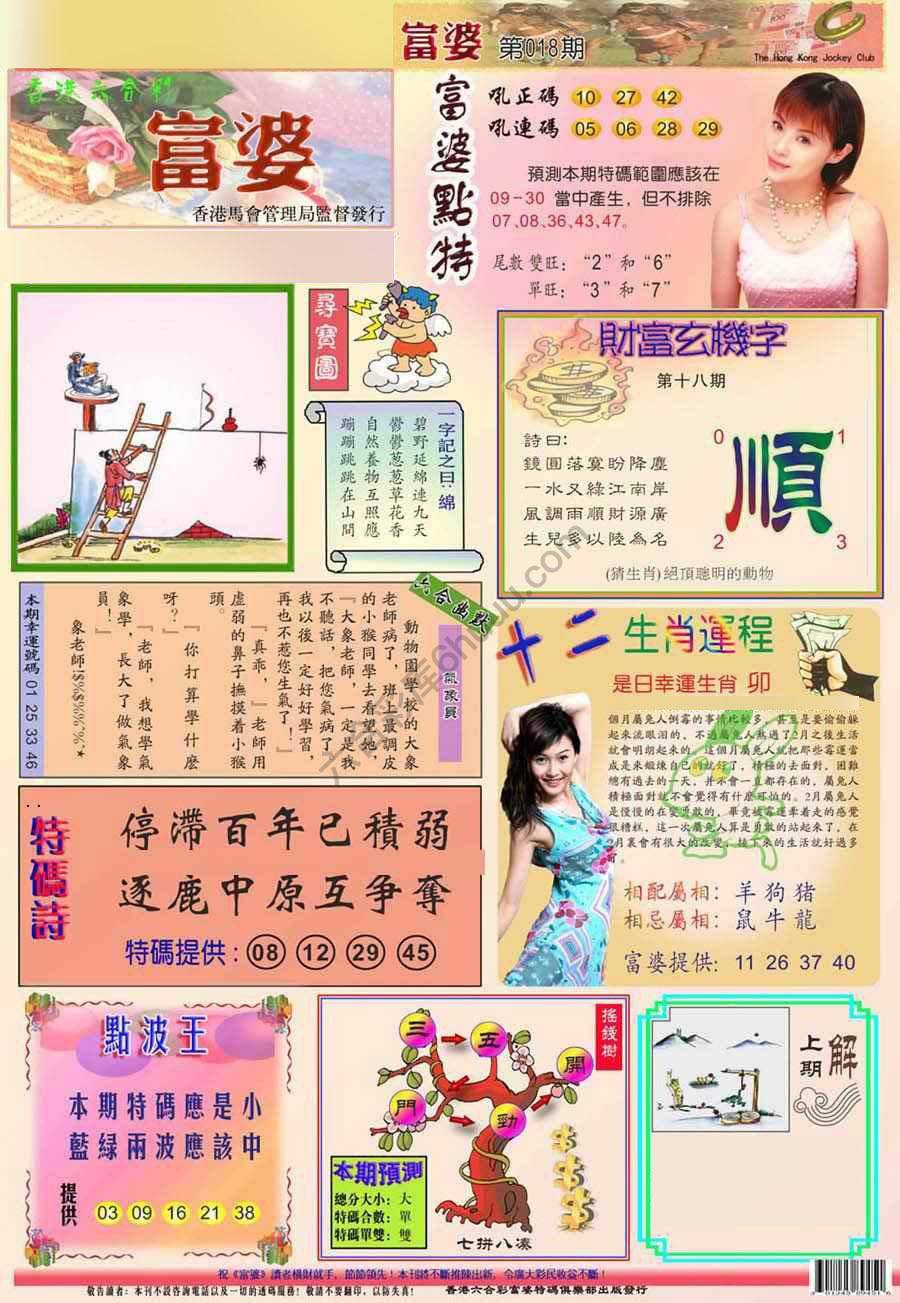 富婆 第018期
The Hong Kong Jockey Club
香港六合彩
富婆
香港馬會管理局監督發行
富婆點特
吼正碼 10 27 42
吼連碼 05 06 28 29
預測本期特碼範圍應該在
09-30 當中產生，但不排除
07、08、36、43、47。
尾數雙旺：“2”和“6”
單旺：“3”和“7”
尋寶圖
一字記之曰：綿
碧野延綿連九天
鬱鬱蔥蔥草花香
自然養物互照應
蹦蹦跳跳在山間
財富玄機字
第十八期
詩曰：
鏡圓落寞盼降塵
一水又綠江南岸
風調雨順財源廣
生兒多以陸為名
0 1
順
2 3
(猜生肖)絕頂聰明的動物
六合幽默
氣象員
動物園學校的大象
老師病了，班上最調皮
的小猴同學去看望她。
『大象老師，一定是我
不聽話，把您氣病了，
我以後一定好好學習，
再也不惹您生氣了！』
『真乖，』老師用
虛弱的鼻子撫摸着小猴
頭。
『你打算學什麼
呀？』
『老師，我想學氣
象學，長大了做氣象
員！』
象老師!$%$%%^%*
本期幸運號碼 01 25 33 46
十二生肖運程
是日幸運生肖 卯
個月屬兔人倒霉的事情比較多，甚至是要偷偷躲
起來流眼泪的。不過屬兔人熬過了2月之後生活
就會明朗起來的。這個月屬兔人就把那些霉運當
成是來鍛煉自己的就好了，積極的去面對，困難
總有過去的一天，并不會一直都存在的，屬兔人
積極面對就不會覺得有什麼可怕的。2月屬兔人
是慢慢的在變勇敢的，畢竟被霉運牽着走的感覺
很糟糕，這一次屬兔人算是勇敢的站起來了，在
2月裏會有很大的改變，接下來的生活就好過多
了。
相配屬相：羊 狗 豬
相忌屬相：鼠 牛 龍
富婆提供：11 26 37 40
特碼詩
停滯百年已積弱
逐鹿中原互爭奪
特碼提供：08 12 29 45
點波王
本期特碼應是小
藍綠兩波應該中
提供 03 09 16 21 38
搖錢樹
三 五
門 勁 開
本期預測
總分大小：大
特碼合數：單
特碼單雙：雙
七拼八湊
上期解
祝《富婆》讀者橫財就手，節節領先！本刊將不斷推陳出新，令廣大彩民收益不斷！
敬告讀者：本刊不設咨詢電話以及一切的透碼服務！敬請不要翻印，以防失真！ 香港六合彩富婆特碼俱樂部出版發行